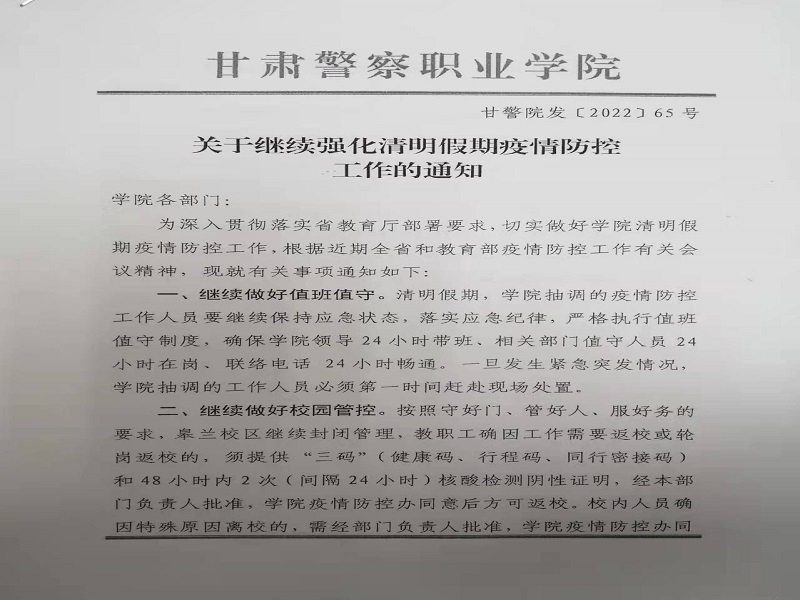 甘肃警察职业学院
甘警院发〔2022〕65 号
关于继续强化清明假期疫情防控
工作的通知
学院各部门：
为深入贯彻落实省教育厅部署要求，切实做好学院清明假
期疫情防控工作，根据近期全省和教育部疫情防控工作有关会
议精神，现就有关事项通知如下：
一、继续做好值班值守。清明假期，学院抽调的疫情防控
工作人员要继续保持应急状态，落实应急纪律，严格执行值班
值守制度，确保学院领导 24 小时带班、相关部门值守人员 24
小时在岗、联络电话 24 小时畅通。一旦发生紧急突发情况，
学院抽调的工作人员必须第一时间赶赴现场处置。
二、继续做好校园管控。按照守好门、管好人、服好务的
要求，皋兰校区继续封闭管理，教职工确因工作需要返校或轮
岗返校的，须提供“三码”（健康码、行程码、同行密接码）
和 48 小时内 2 次（间隔 24 小时）核酸检测阴性证明，经本部
门负责人批准，学院疫情防控办同意后方可返校。校内人员确
因特殊原因离校的，需经部门负责人批准，学院疫情防控办同